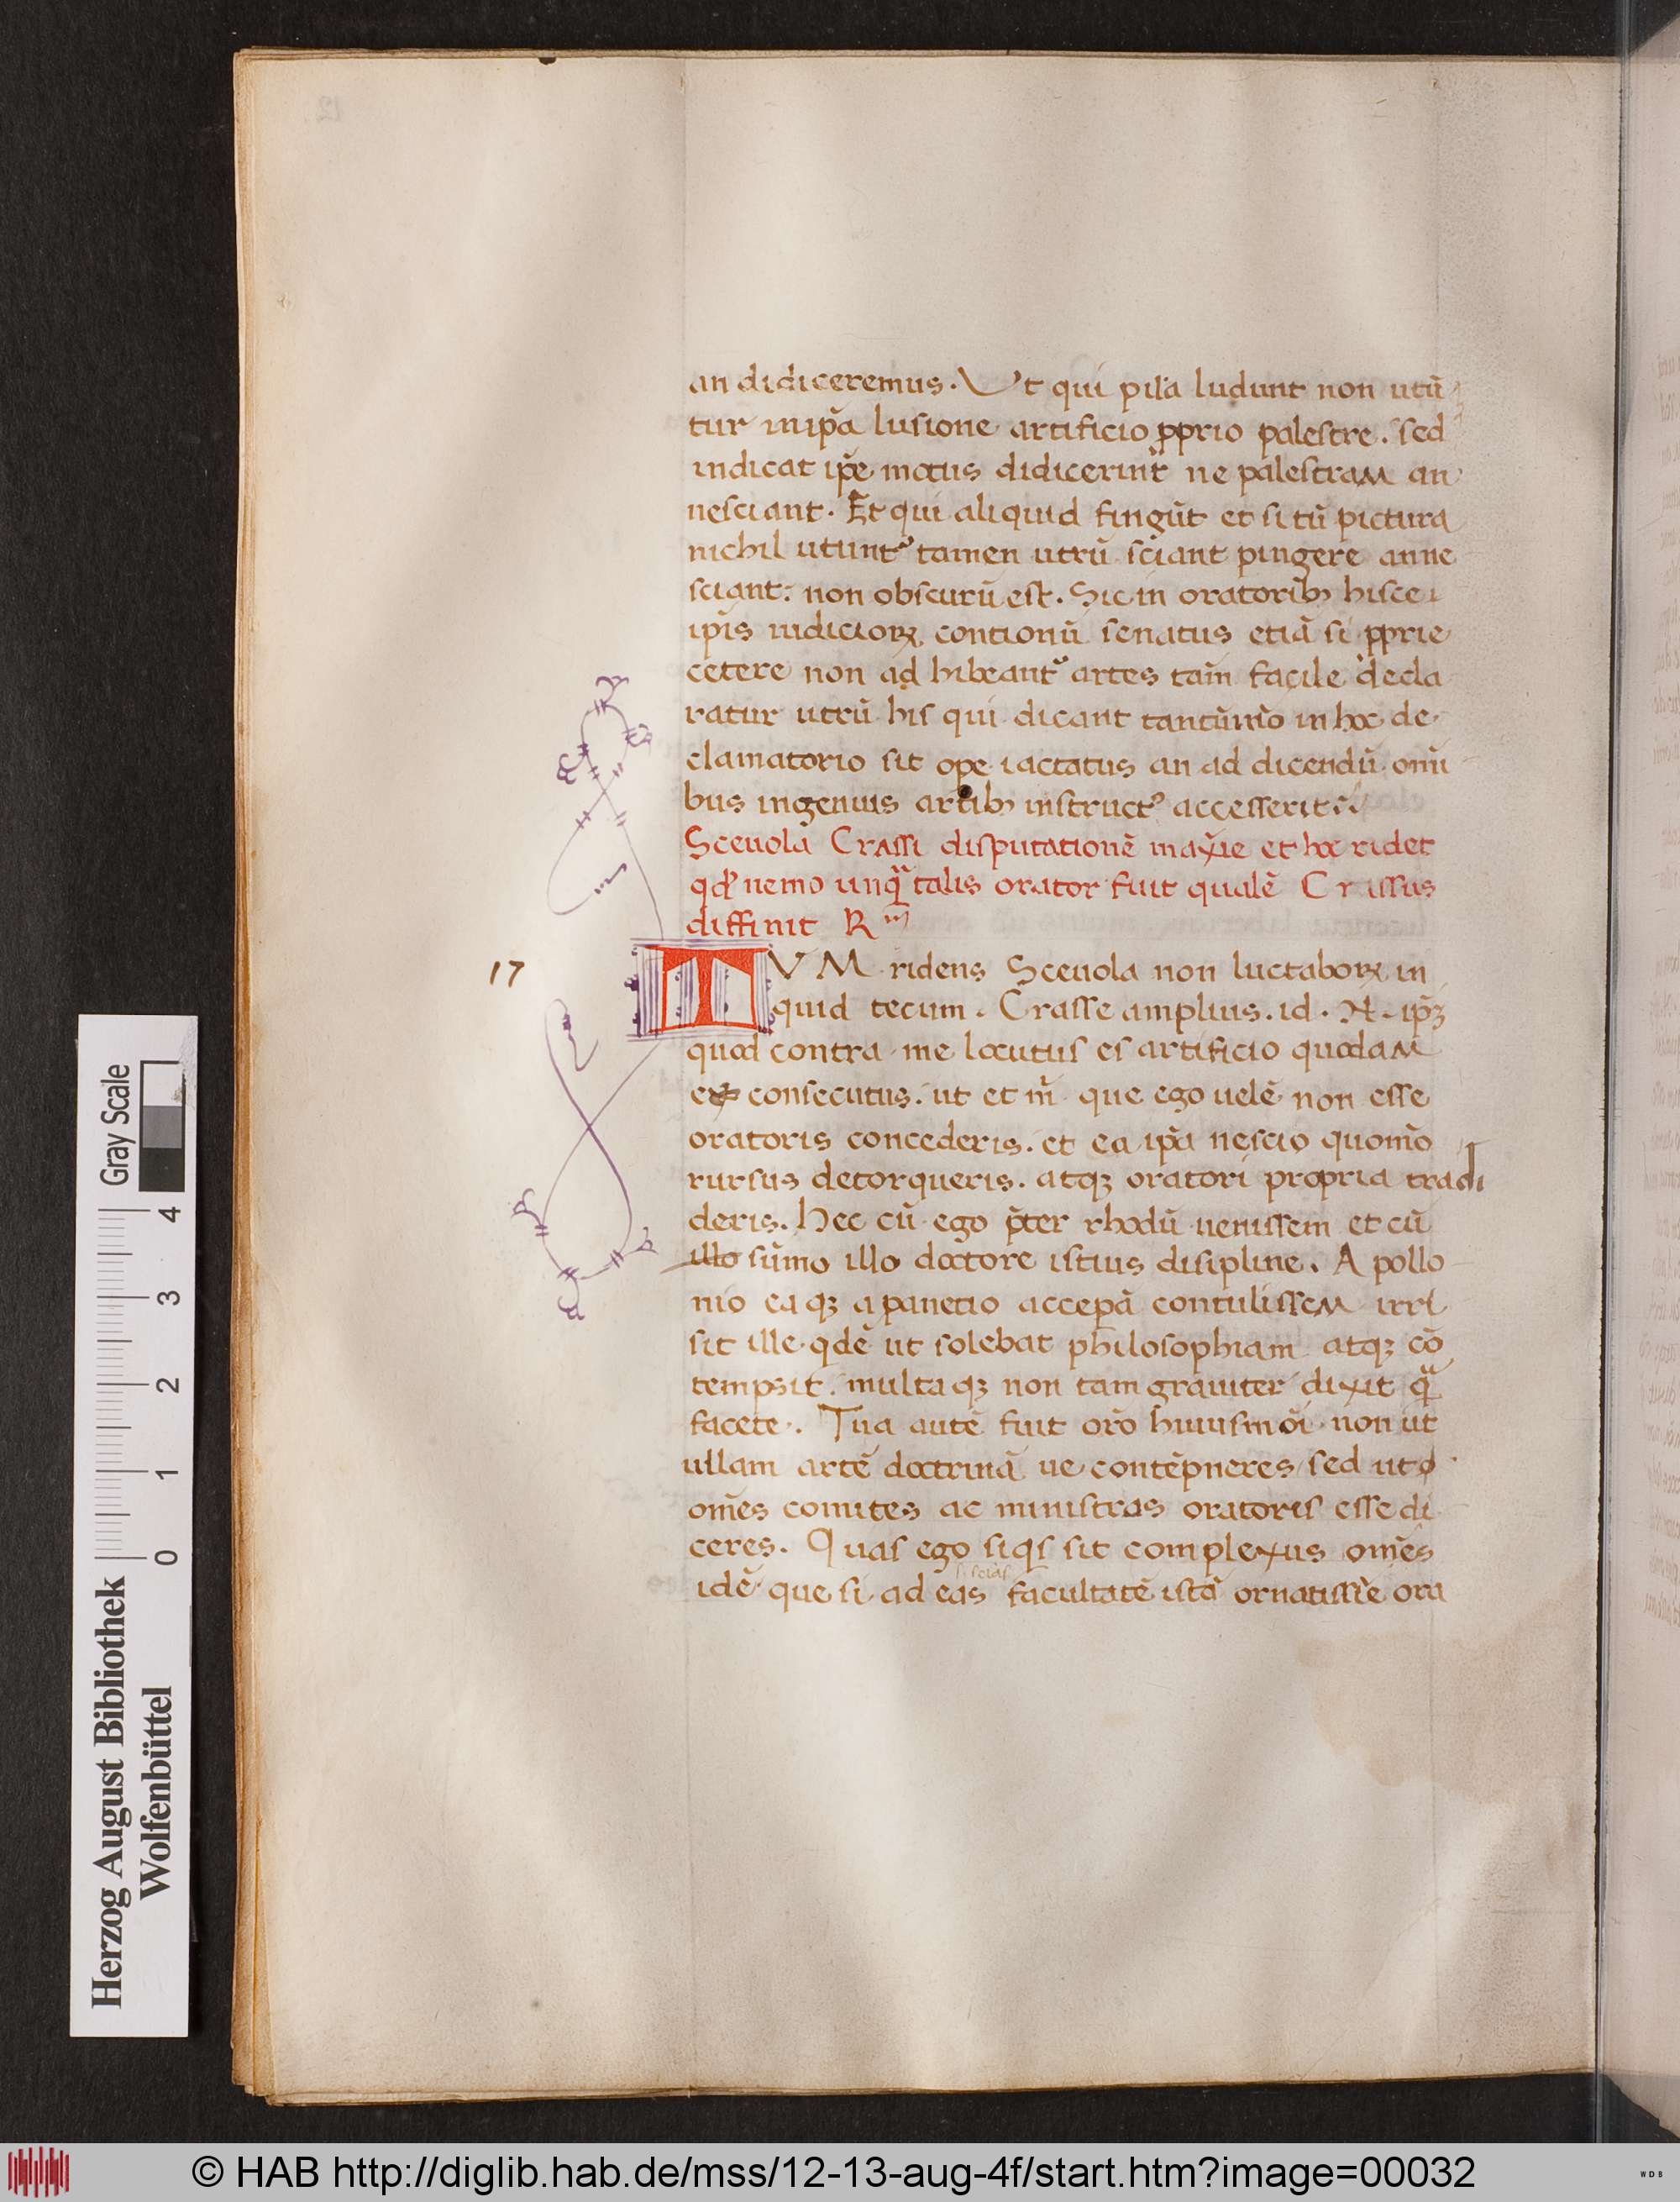 an didiceremus. Ut qui pila ludunt non utū
tur in ip̄a lusione artificio ꝓprio palestre. sed
indicat ip̄e motus didicerint ne palestram an
nesciant. Et qui aliquid fingūt et si tū pictura
nichil utunt᷒ tamen utrū sciant pingere anne
sciant: non obscurū est. Sic in oratorib; hisce
ip̄is iudicioꝝ contionū senatus etiā si ꝓprie
cetere non ad hibeant᷒ artes tam̄ facile decla
ratur utrū his qui dicant tantūmō in hoc de
clamatorio sit ope iactatus an ad dicendū omī
bus ingenuis artib; instruct᷒ accesserit
Sceuola Crassi disputationē maxīe et hoc ridet
qd̕ nemo unqᷓ talis orator fuit qualē Crassus
diffinit R
17
TUM ridens Sceuola non luctaboꝝ in
quid tecum. Crasse amplius. id. N. ip̄ꝫ
quod contra me locutus es artificio quodam
es consecutus. ut et m̄ que ego uelē non esse
oratoris concederis. et ea ip̄a nescio quom̄o
rursus detorqueris. atqꝫ oratori propria tradi
deris. Hec cū ego p̄ter rhodū uenissem et cū
illo sūmo illo doctore istius disipline. Apollo
nio ea qꝫ a panetio accepā contulissem irri
sit ille qdē ut solebat philosophiam atqꝫ cō
tempsit. multa qꝫ non tam grauiter dixit qᷓ
facete. Tua autē fuit or̄o huiusmōi non ut
ullam artē doctrinā ue contēpneres sed ut
om̄es comites ac ministras oratoris esse di
ceres. Quas ego siqs sit complexus om̄es
si scias
idē que si ad eas facultatē istā ornatissīe ora
Herzog August Bibliothek
Wolfenbüttel
Gray Scale
0 1 2 3 4
© HAB http://diglib.hab.de/mss/12-13-aug-4f/start.htm?image=00032
WDB